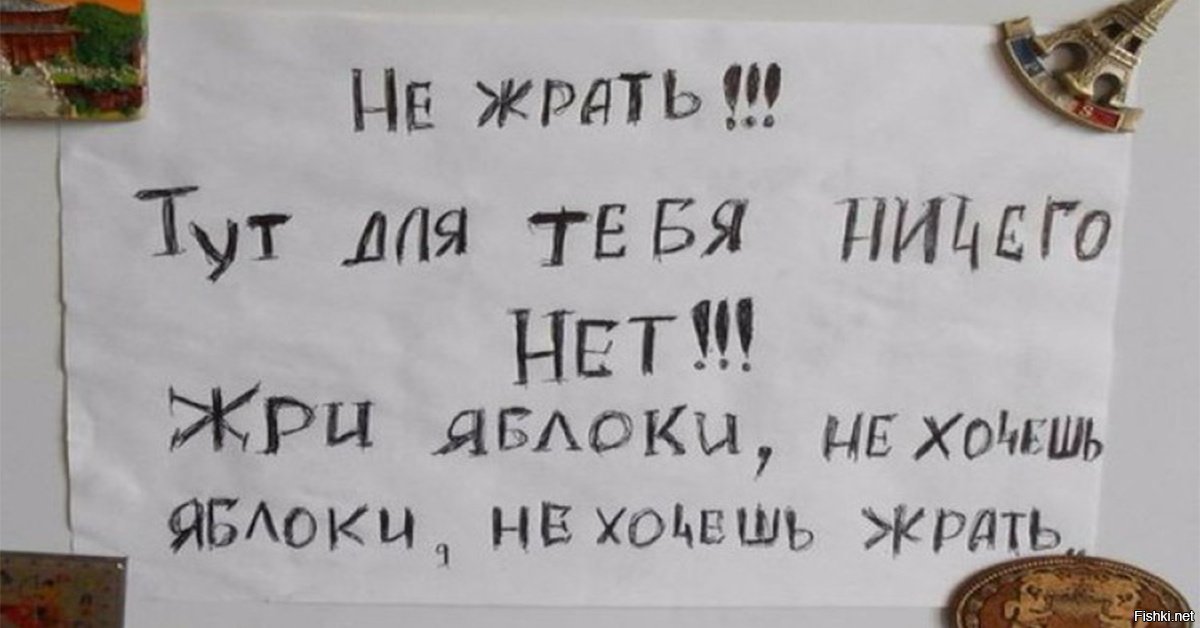 Не жрать!!!
Тут для тебя ничего
нет!!!
Жри яблоки, не хочешь
яблоки, не хочешь жрать..
Fishki.net